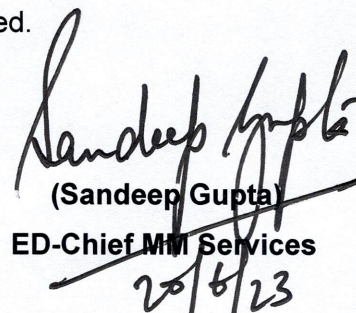 ed.
Sandeep Gupta
(Sandeep Gupta)
ED-Chief MM Services
20/6/23